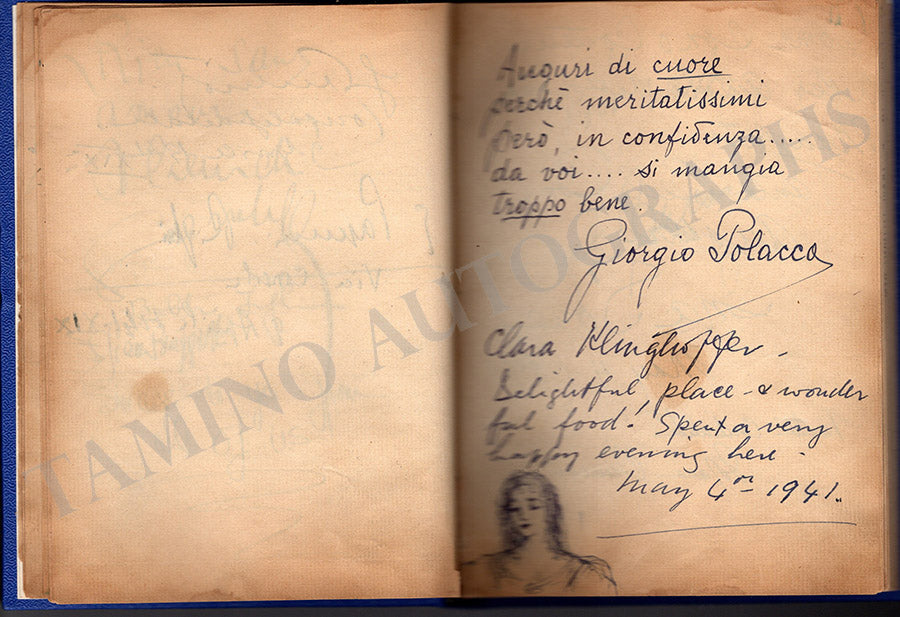 Auguri di cuore
perchè meritatissimi
però, in confidenza.....
da voi.... si mangia
troppo bene.
Giorgio Polacco
Clara Klinghoffer -
Delightful, place - & wonder
ful food. Spent a very
happy evening here -
May 4th 1941.
TAMINO AUTOGRAPHS